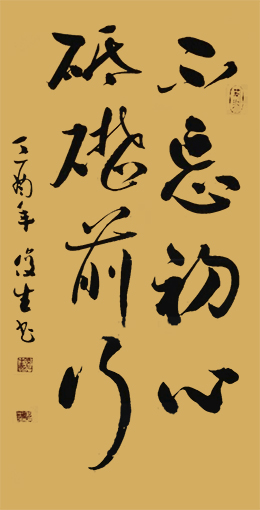 不忘初心
砥礪前行
丁酉年 生书